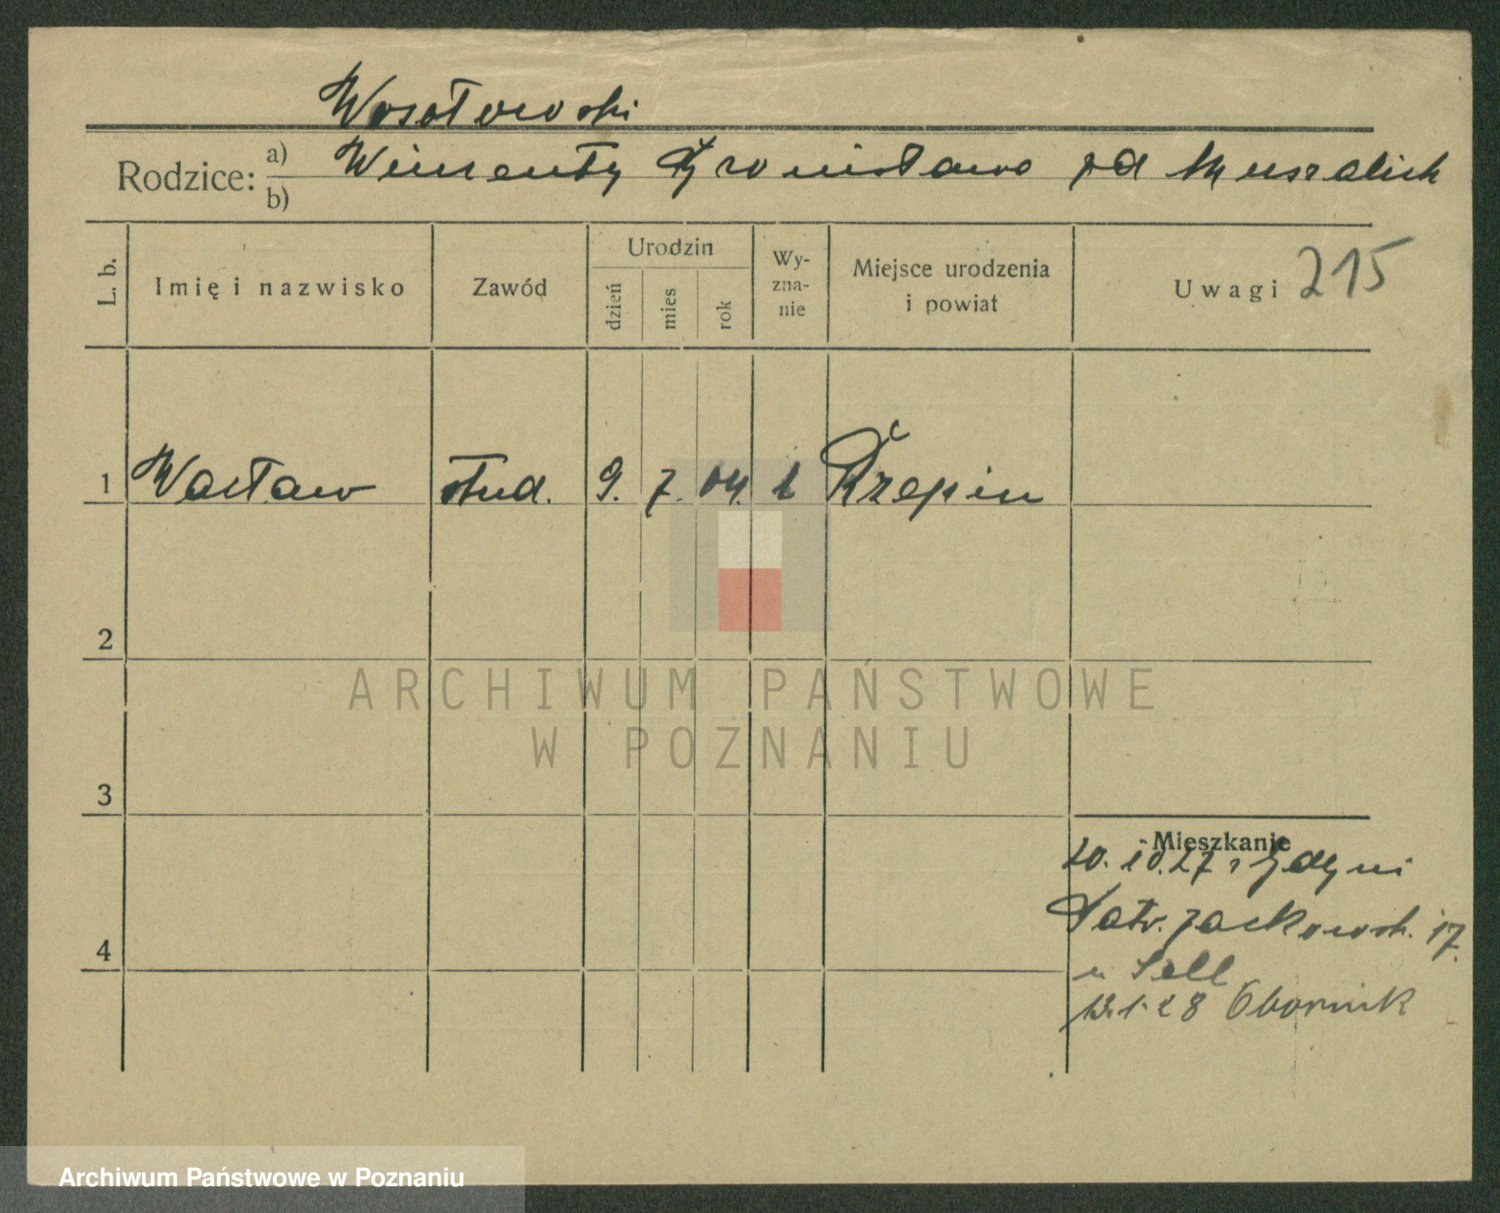 Wosotowski
Rodzice: a) Wincenty Bronisława zd Muszalich
b)
L. b. Imię i nazwisko Zawód Urodzin dzień mies rok Wy-zna-nie Miejsce urodzenia i powiat Uwagi 215
1 Wacław stud. 9. 7. 04. Rzepin
2
3
4
Mieszkanie
20. 10. 27 z Gdyni
Patr. Jackowsk. 17.
u Sell
13. 1. 28 Obornik
ARCHIWUM PAŃSTWOWE
W POZNANIU
Archiwum Państwowe w Poznaniu